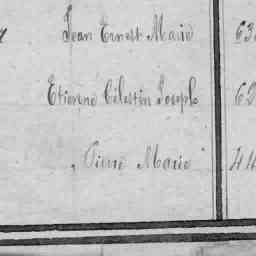 Jean Ernest Marie 63
Etienne Célestin Joseph 62
Pierre Marie 44